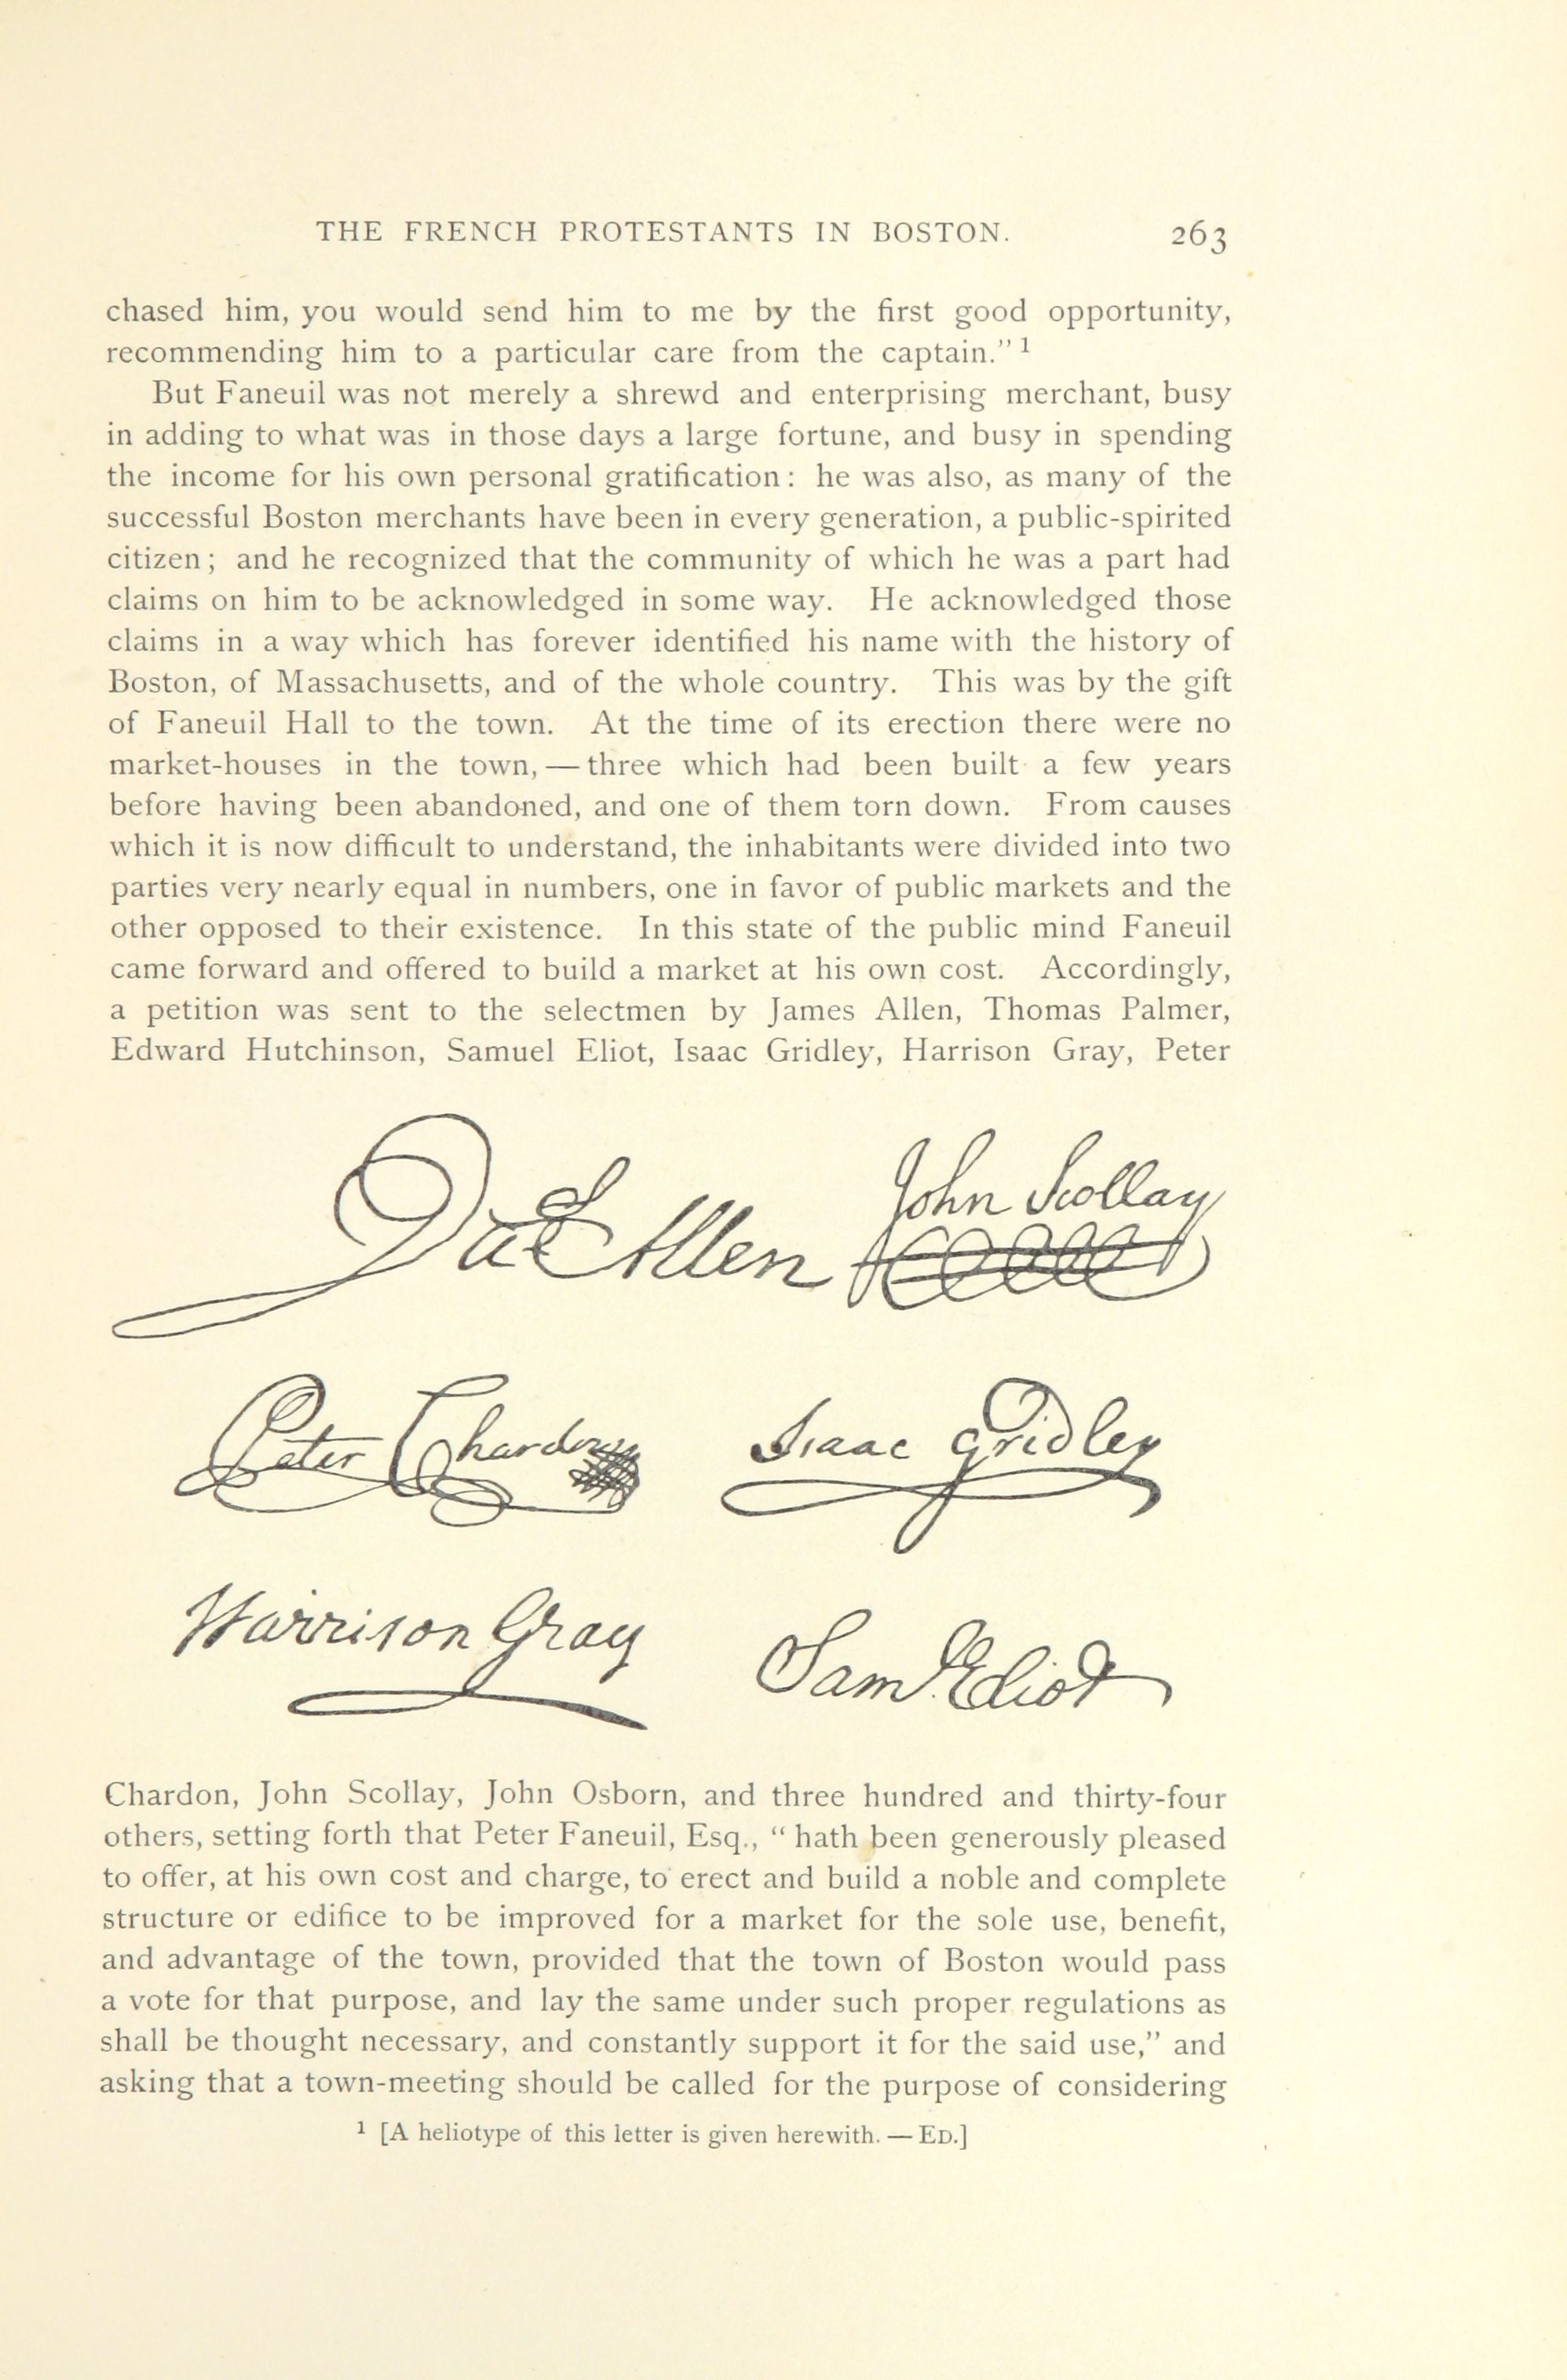 THE FRENCH PROTESTANTS IN BOSTON. 263
chased him, you would send him to me by the first good opportunity,
recommending him to a particular care from the captain." 1
But Faneuil was not merely a shrewd and enterprising merchant, busy
in adding to what was in those days a large fortune, and busy in spending
the income for his own personal gratification: he was also, as many of the
successful Boston merchants have been in every generation, a public-spirited
citizen; and he recognized that the community of which he was a part had
claims on him to be acknowledged in some way. He acknowledged those
claims in a way which has forever identified his name with the history of
Boston, of Massachusetts, and of the whole country. This was by the gift
of Faneuil Hall to the town. At the time of its erection there were no
market-houses in the town, — three which had been built a few years
before having been abandoned, and one of them torn down. From causes
which it is now difficult to understand, the inhabitants were divided into two
parties very nearly equal in numbers, one in favor of public markets and the
other opposed to their existence. In this state of the public mind Faneuil
came forward and offered to build a market at his own cost. Accordingly,
a petition was sent to the selectmen by James Allen, Thomas Palmer,
Edward Hutchinson, Samuel Eliot, Isaac Gridley, Harrison Gray, Peter
Allen John Scollay
Peter Chardon Isaac Gridley
Harrison Gray Saml. Eliot
Chardon, John Scollay, John Osborn, and three hundred and thirty-four
others, setting forth that Peter Faneuil, Esq., "hath been generously pleased
to offer, at his own cost and charge, to erect and build a noble and complete
structure or edifice to be improved for a market for the sole use, benefit,
and advantage of the town, provided that the town of Boston would pass
a vote for that purpose, and lay the same under such proper regulations as
shall be thought necessary, and constantly support it for the said use," and
asking that a town-meeting should be called for the purpose of considering
1 [A heliotype of this letter is given herewith. — ED.]